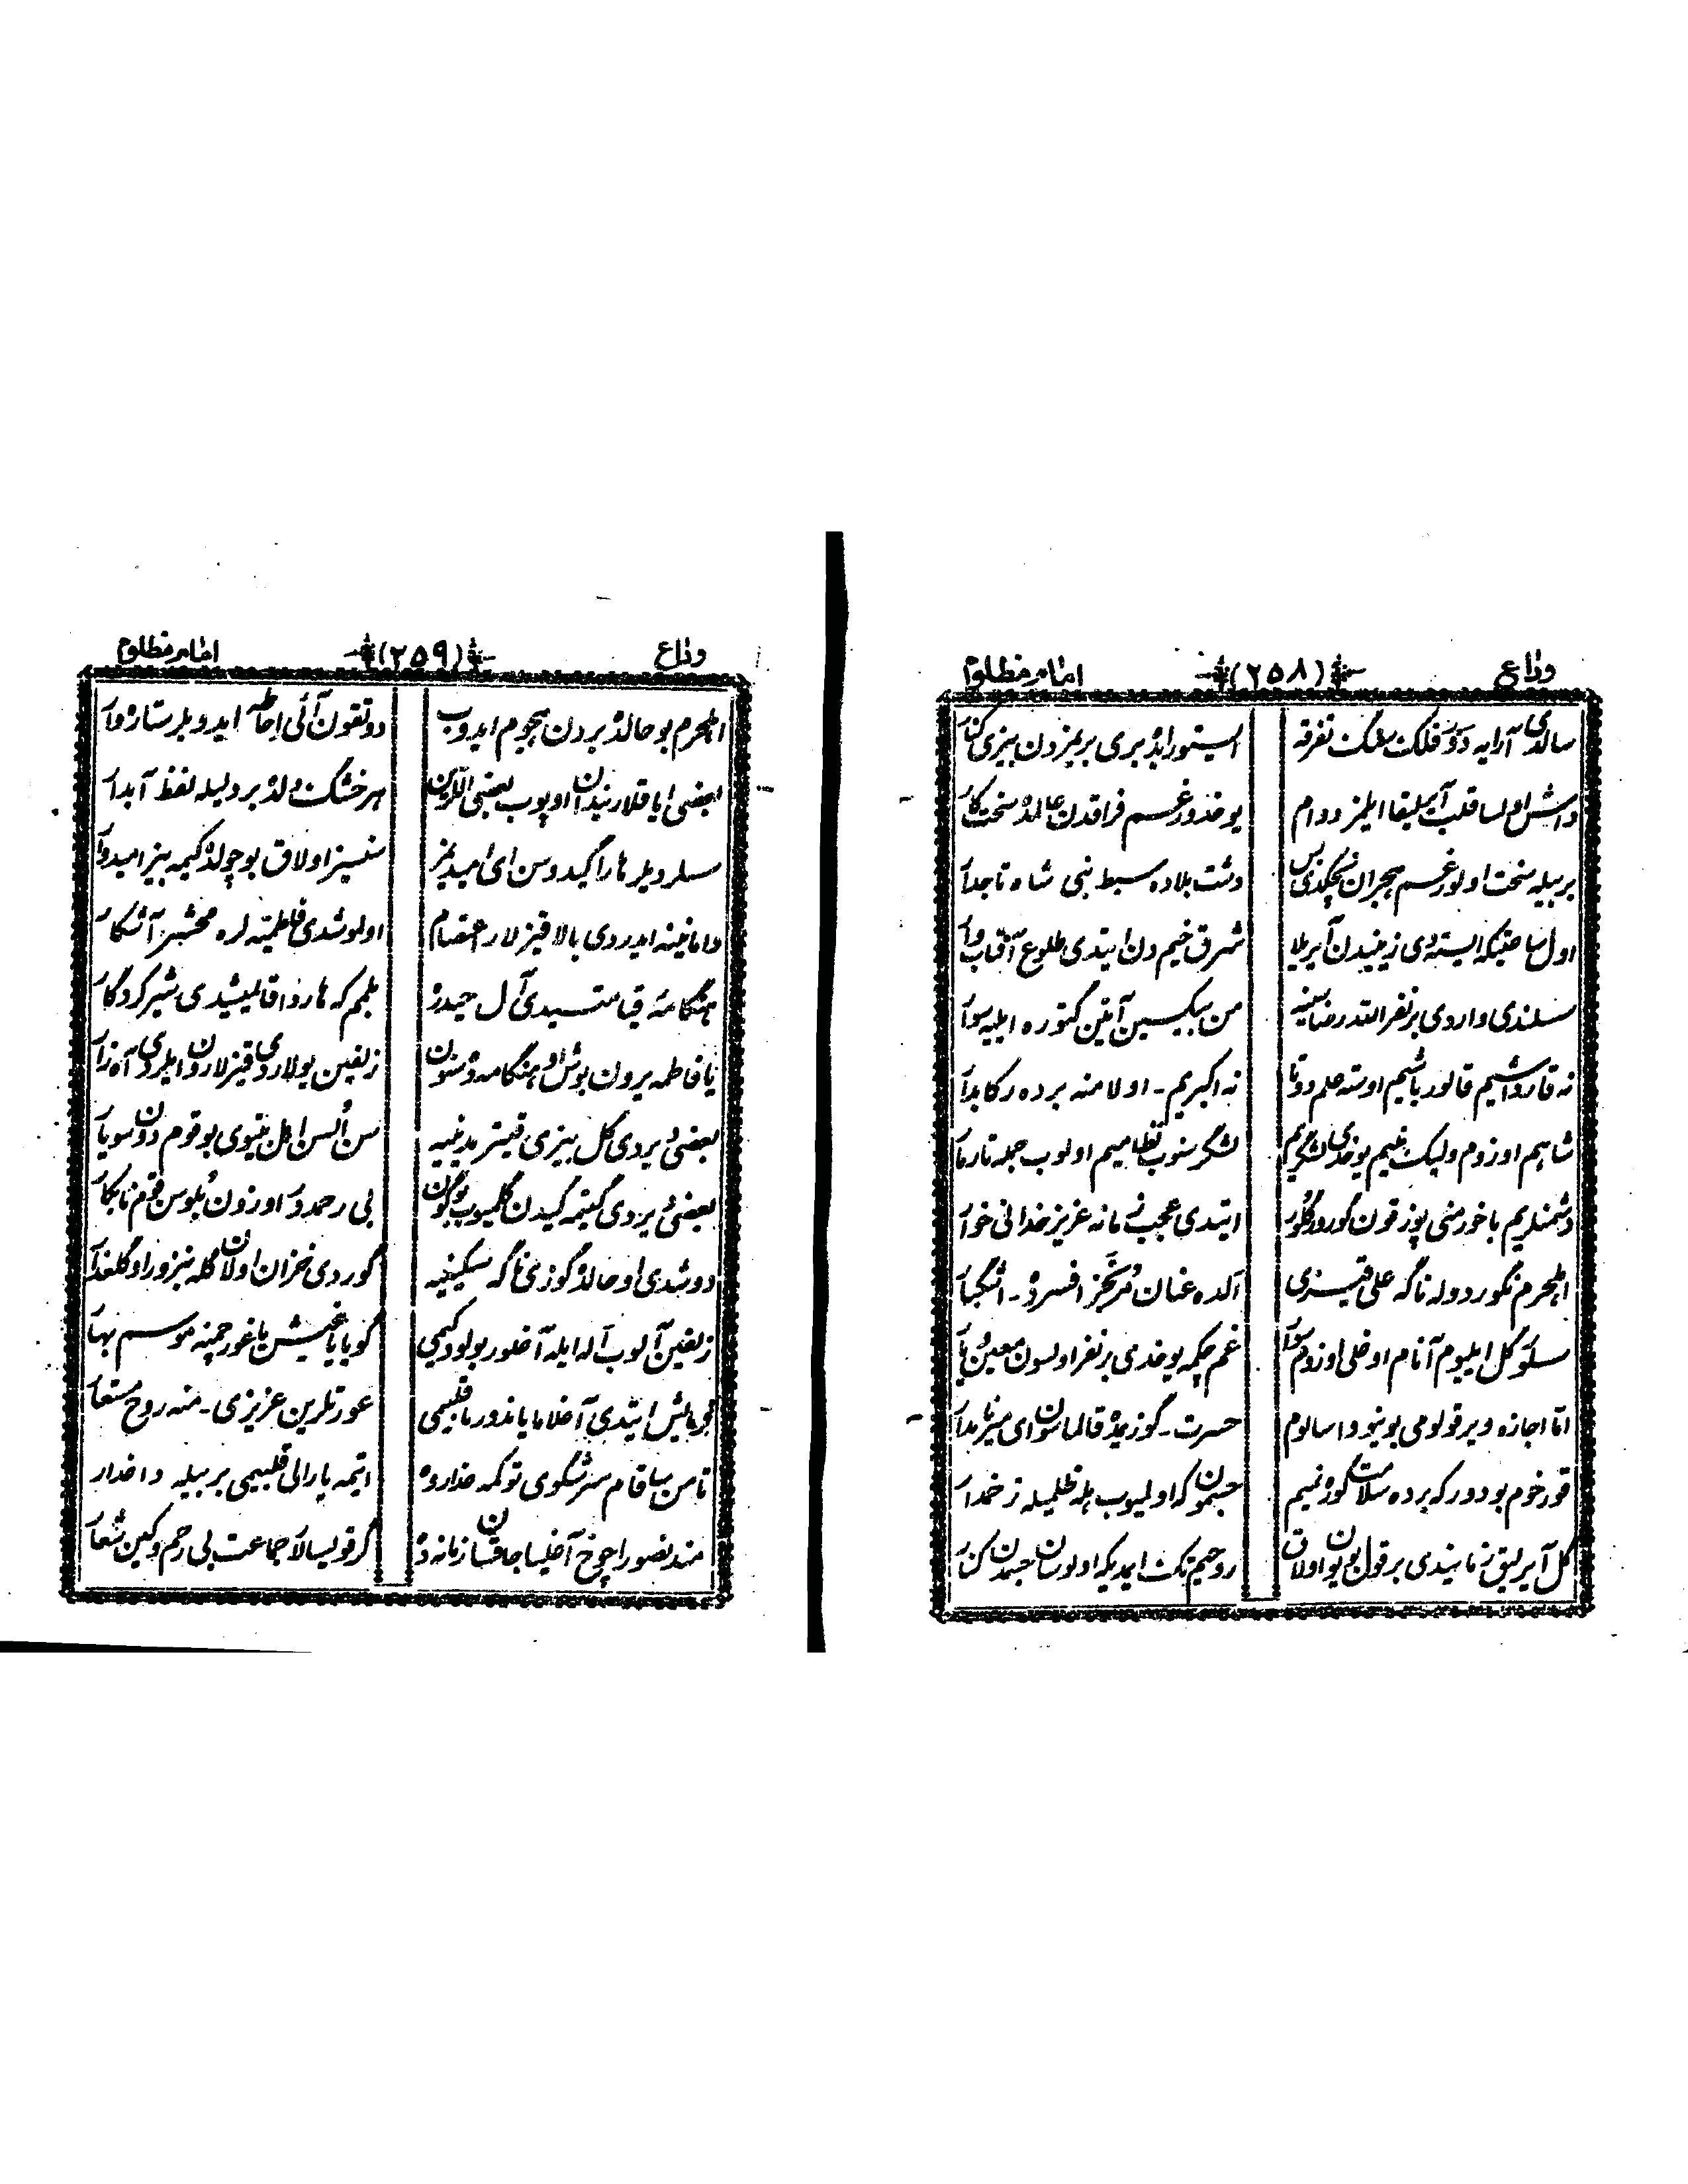 وداع (۲۵۸) امام مظلوم
سالدی آرایه دور فلک سلک تفرقه
ایستور ایده بری بریمزدن بیزی کنار
داش اولسا قلب آیریلیقا ایلمز دوام
یوخدور غم فراقدن عالمده سخت کار
بر بیله سخت اولور غم هجران نچکدی بس
دشت بلاده سبط نبی شاه تاجدار
اول ساعتیکه ایستدی زینبدن آیریلا
شرق خیم دن ایتدی طلوع آفتاب وار
سسلندی واردی بر نفر الله رضاسینه
من بیکسین آتین گتوره ایلیه سوار
نه قارداشیم قالور باشیم اوسته علم دوتا
نه اکبریم ـ اولا منه برده رکابدار
شاهم اوزوم ولیک نیم یوخدی لشگریم
لشگر سنوب نظامیم اولوب جمله تارمار
دشمنلریم باخور منی یوزقون گورور گلور
ایتدی عجب زمانه عزیز خدانی خوار
اهل حرم نگوردوله ناگه علی قیزی
آلده عنان افسرده ـ اشگبار
سسلر گل ایلیوم آنام اوغلی اوزوم سوار
غم چکمه یوخدی بر نفر اولسون معین و یار
اما اجازه ویر قولومی بوینووا سالوم
حسرت ـ گوزیمده قالماسون ای میر نامدار
قورخوم بودور که برده سلامت گورنمیم
جسمون که اولیوب هله ظلمیله زخمدار
گل آیریلیق زمانیدی بر قول بویون اولاق
روحیم تک ایمدیکه اولورسان جسمدن کنار
وداع (۲۵۹) امام مظلوم
اهل حرم بو حالده بردن هجوم ایدوب
دوتقون آئی احاطه ایدوبلر ستاره وار
بعضی ایاقلاریندان اوپوب بعضی اللرین
هر خشک دلده بر دیلیله لفظ آبدار
سسلردیلر هارا گیدوسن ای امیدیمز
سنسیز اولاق بو چولده کیمه بیز امیدوار
دامانینه ایدردی بالا قیزلار اعتصام
اولوشدی فاطمیّه لره محشر آشکار
هنگامهٔ قیامتسیدی آل حیدره
بلمم که هاردا قالمیشدی شیر کردگار
یا فاطمه یرون بوش او هنگامه ده سنون
زلفین یولاردی قیزلارون ایلردی آه زار
بعضی دیردی گل بیزی قیتر مدینیه
سن اُلسن اهل بیتوی بو قوم دون سویار
بعضی دیردی گیتمه گیدن گلمیوب بوگون
بی رحمدور اوزون بلوسن قوم نابکار
دوشدی او حالده گوزی ناگه سکینیه
گوردی خزان اولان گله بنزور او گلعذار
زلفین آلوب اله ایله آخلور بولود کیمی
گویا یاغیش یاغور چمنه موسم بهار
فرمایش ایتدی آخلاما یاندورما قلبیمی
عورتلرین عزیزی ـ منه روح مستعار
تا من ساقام سرشگوی توکمه عذاروه
ایتمه یارالی قلبیمی بر بیله داغدار
مندنصورا چوخ آخلیاجاقسان زمانه ده
گر قویسالار جماعت بی رحم و کین شعار